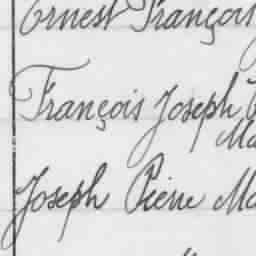 Ernest François
François Joseph
Ma
Joseph Pierre Ma